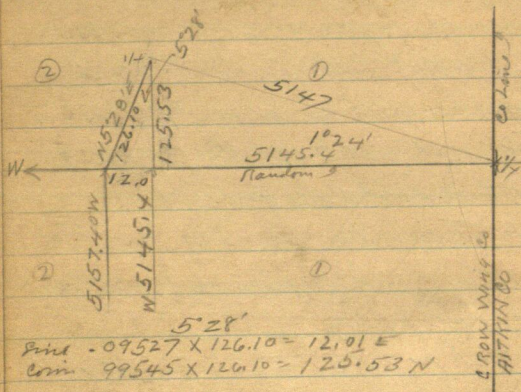 5°28'
1/4
②
①
Co Line
N5°28'E
126.10
125.53
5147
1°24'
5145.4
Random
W
12.0
1/4
5157.40W
W5145.4
②
①
CROW WING CO
AITKIN CO
5°28'
Sine .09527 X 126.10 = 12.01 E
Cosin 99545 X 126.10 = 125.53 N